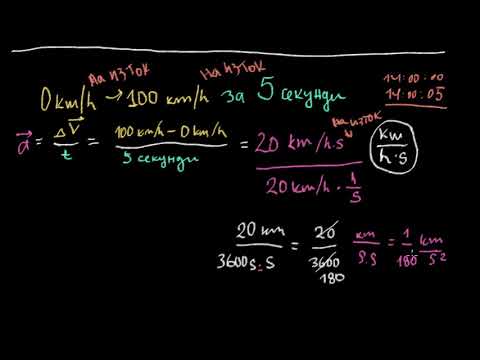 на изток на изток
0 km/h → 100 km/h за 5 секунди
14:00:00
14:00:05
a = ΔV / t = 100 km/h - 0 km/h / 5 секунди = 20 km/h.s на изток
km / h·s
20 km/h · h/s
20 km / 3600s·s = 20 / 3600 km / s.s = 1 / 180 km / s²
180